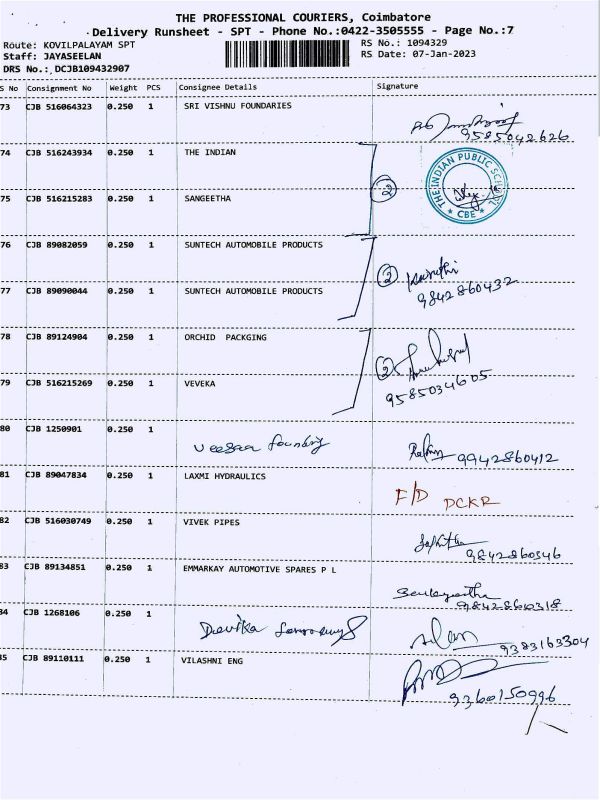 THE PROFESSIONAL COURIERS, Coimbatore
Delivery Runsheet - SPT - Phone No.:0422-3505555 - Page No.:7
Route: KOVILPALAYAM SPT
Staff: JAYASEELAN
DRS No.: DCJB109432907
RS No.: 1094329
RS Date: 07-Jan-2023
S No Consignment No Weight PCS Consignee Details Signature
73 CJB 516064323 0.250 1 SRI VISHNU FOUNDARIES
9585042626
74 CJB 516243934 0.250 1 THE INDIAN
THE INDIAN PUBLIC SCHOOL
* CBE *
2
75 CJB 516215283 0.250 1 SANGEETHA
76 CJB 89082059 0.250 1 SUNTECH AUTOMOBILE PRODUCTS
2
9842860432
77 CJB 89090044 0.250 1 SUNTECH AUTOMOBILE PRODUCTS
78 CJB 89124904 0.250 1 ORCHID PACKGING
2
9585034605
79 CJB 516215269 0.250 1 VEVEKA
80 CJB 1250901 0.250 1 foundry
9942860412
81 CJB 89047834 0.250 1 LAXMI HYDRAULICS
F/D DCKR
82 CJB 516030749 0.250 1 VIVEK PIPES
9842860346
83 CJB 89134851 0.250 1 EMMARKAY AUTOMOTIVE SPARES P L
9842860318
84 CJB 1268106 0.250 1 Devika
9383163304
85 CJB 89110111 0.250 1 VILASHNI ENG
9360150996